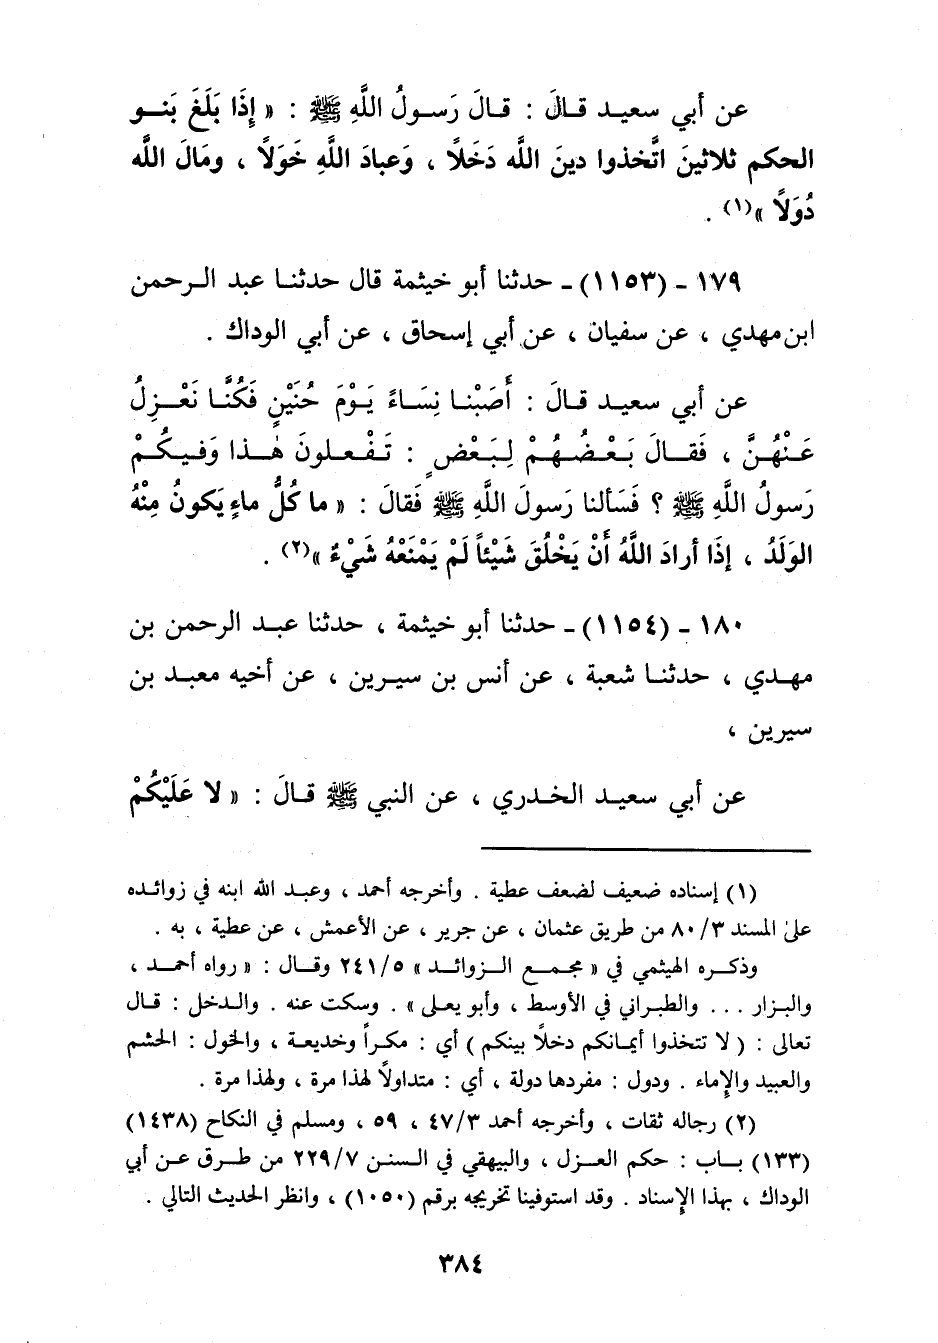 عن أبي سعيد قالَ : قالَ رَسولُ اللَّهِ ﷺ : « إِذَا بَلَغَ بَنو
الحكم ثلاثينَ اتَّخذوا دينَ اللَّه دَخَلاً ، وَعبادَ اللَّهِ خَوَلاً ، ومَالَ اللَّه
دُوَلاً »(١) .
١٧٩ - (١١٥٣) - حدثنا أبو خيثمة قال حدثنا عبد الرحمن
ابن مهدي ، عن سفيان ، عن أبي إسحاق ، عن أبي الوداك .
عن أبي سعيد قالَ : أَصَبْنا نِسَاءً يَوْمَ حُنَيْنٍ فَكُنَّا نَعْزِلُ
عَنْهُنَّ ، فَقالَ بَعْضُهُمْ لِبَعْضٍ : تَفْعلونَ هٰذا وَفيكُمْ
رَسولُ اللَّهِ ﷺ ؟ فَسَألنا رَسولَ اللَّهِ ﷺ فَقالَ : « ما كُلُّ ماءٍ يَكونُ مِنْهُ
الوَلَدُ ، إِذَا أرادَ اللَّهُ أَنْ يَخْلُقَ شَيْئاً لَمْ يَمْنَعْهُ شَيْءٌ »(٢) .
١٨٠ - (١١٥٤) - حدثنا أبو خيثمة ، حدثنا عبد الرحمن بن
مهدي ، حدثنا شعبة ، عن أنس بن سيرين ، عن أخيه معبد بن
سيرين ،
عن أبي سعيد الخدري ، عن النبي ﷺ قالَ : « لا عَلَيْكُمْ
(١) إسناده ضعيف لضعف عطية . وأخرجه أحمد ، وعبد الله ابنه في زوائده
على المسند ٨٠/٣ من طريق عثمان ، عن جرير ، عن الأعمش ، عن عطية ، به .
وذكره الهيثمي في « مجمع الزوائد » ٢٤١/٥ وقال : « رواه أحمد ،
والبزار ... والطبراني في الأوسط ، وأبو يعلى » . وسكت عنه . والدخل : قال
تعالى : ( لا تتخذوا أيمانكم دخلاً بينكم ) أي : مكراً وخديعة ، والخول : الحشم
والعبيد والإماء . ودول : مفردها دولة ، أي : متداولاً لهذا مرة ، ولهذا مرة .
(٢) رجاله ثقات ، وأخرجه أحمد ٤٧/٣ ، ٥٩ ، ومسلم في النكاح (١٤٣٨)
(١٣٣) باب : حكم العزل ، والبيهقي في السنن ٢٢٩/٧ من طرق عن أبي
الوداك ، بهذا الإسناد . وقد استوفينا تخريجه برقم (١٠٥٠) ، وانظر الحديث التالي .
٣٨٤